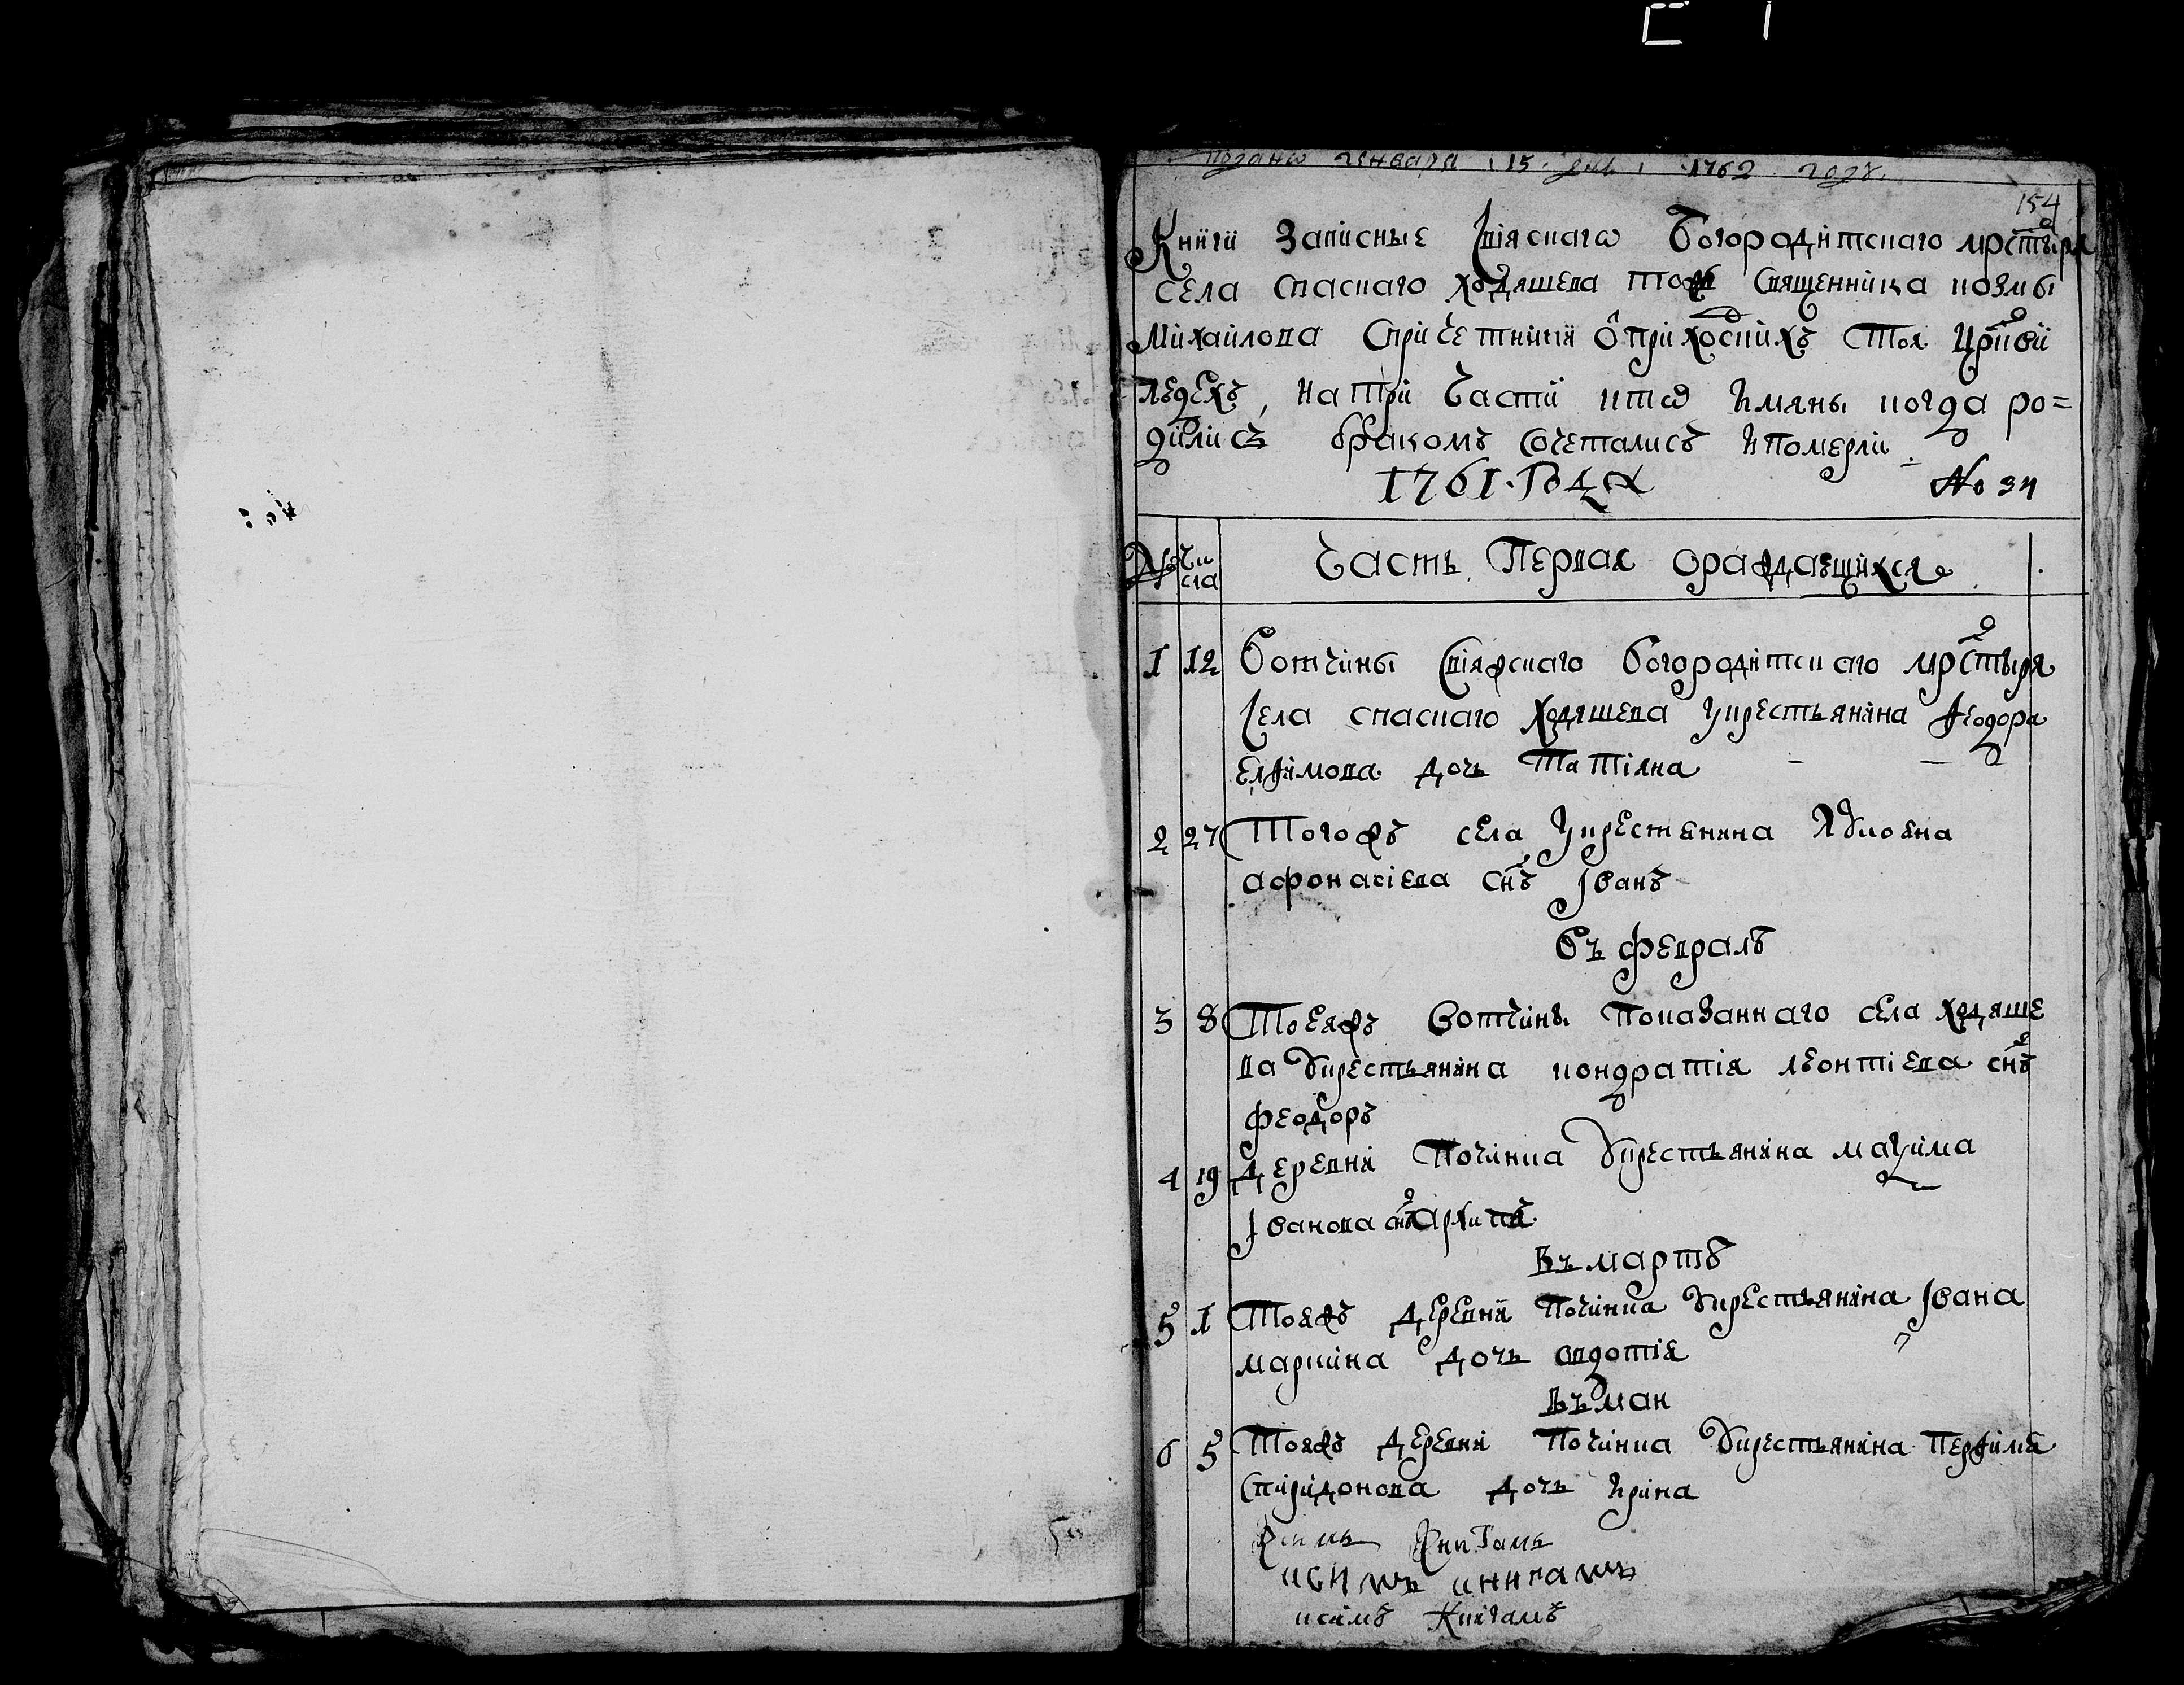 подано генваря 15 дня 1762 году
154
Книги Записные свіяскаго Богородитскаго мрстыря
села спаскаго ходяшева тож священника козмы
михаилова спричетники о приходскихъ тоя цркви
людехъ, на три части кто имяны когда ро=
дились бракомъ сочетались и померли
1761 Года No 34
No Чи
сла
Часть Первая ораждающихся
1 12 Вотчины свіяжскаго богородитскаго мрстыря
села спаскаго ходяшева укрестьянина феодора
елфимова дочь татіяна
2 27 Тогожъ села укрестьянина Якова
афонасіева снъ Іванъ
въ февралѣ
3 8 Тоеяжъ вотчины показаннаго села ходяше
ва укрестьянина кондратія леонтіева снъ
феодоръ
4 19 деревни Починка укрестьянина маѯима
Іванова снъ архипъ
въ мартѣ
5 1 Тояжъ деревни починка укрестьянина Івана
маркина дочь овдотія
въ маи
6 5 Тояжъ деревни Починка укрестьянина перфила
спиридонова дочь ирина
ксимъ книгамъ
ксимъ книгамъ
ксимъ книгамъ